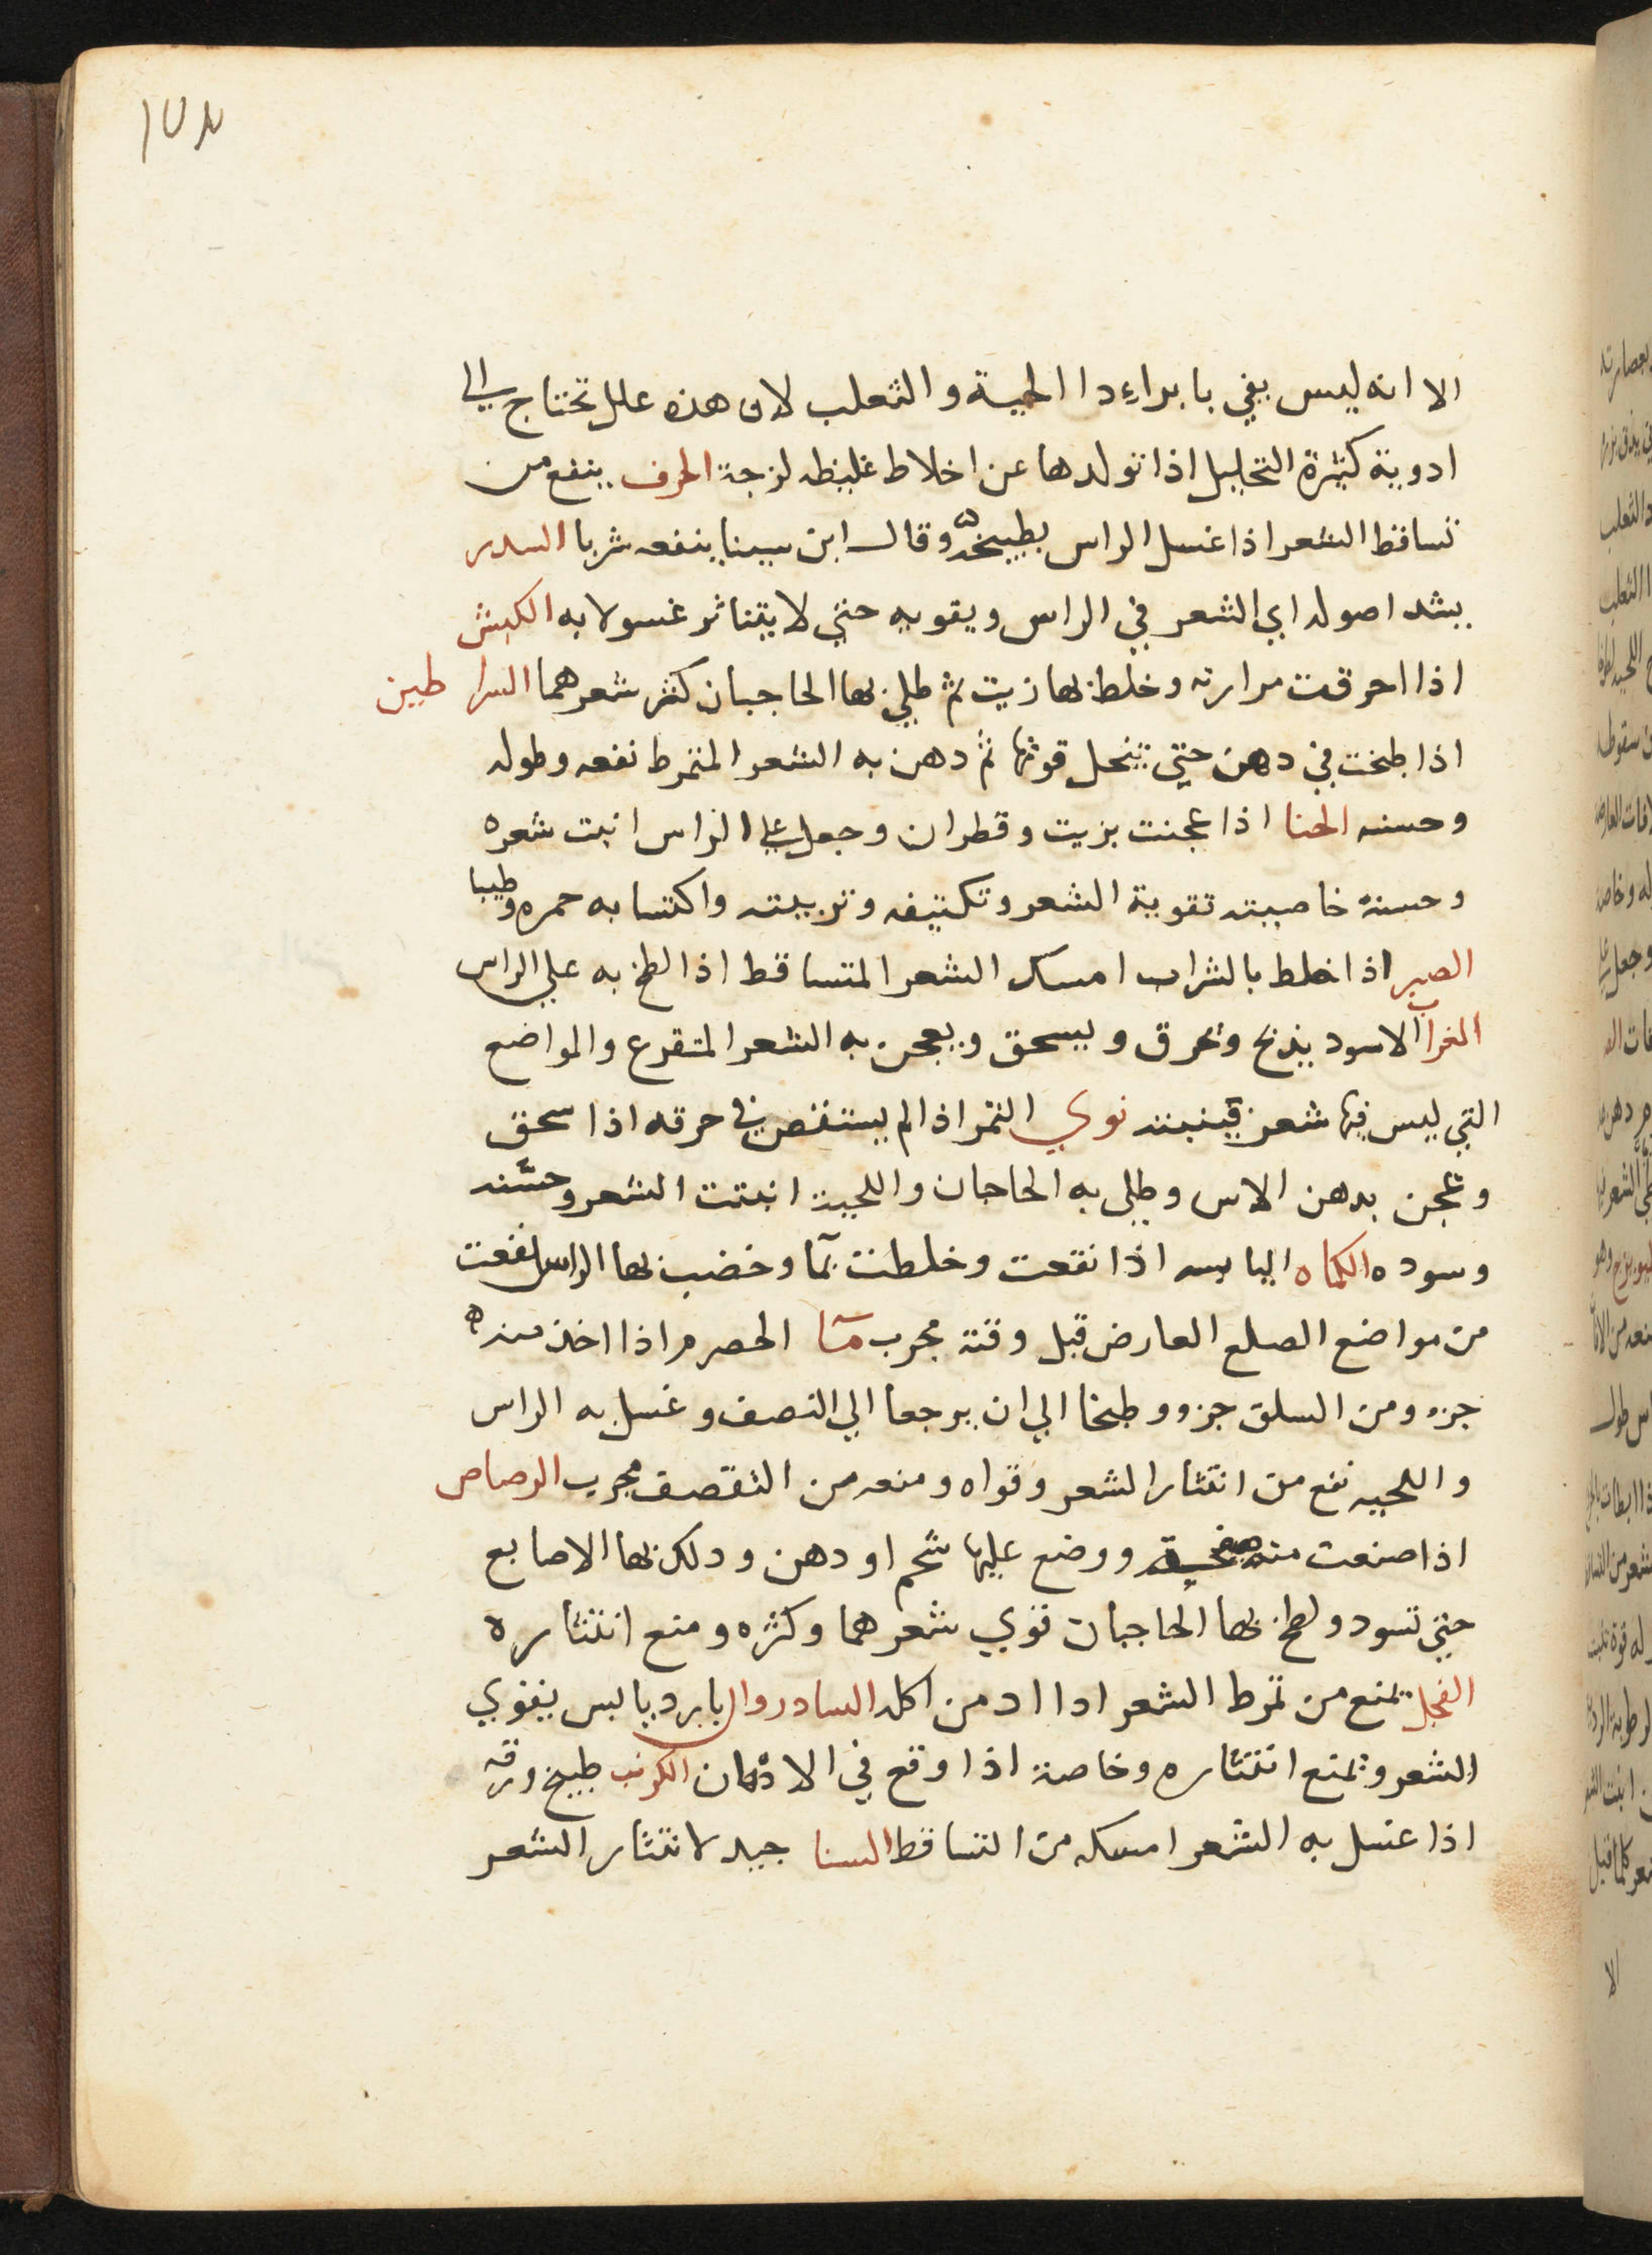 الا انه ليس يفي با براء دا الحية والثعلب لان هذه علل تحتاج الي
ادوية كثيرة التحليل اذا تولدها عن اخلاط غليظه لزجة الحرف ينفع من
تساقط الشعر اذا غسل الراس بطبيخه وقال ابن سينا ينفعه شربا السدر
يشد اصوله اي الشعر في الراس ويقويه حتي لا يتناثر غسولا به الكبش
اذا احرقت مرارته وخلط بها زيت ثم طلي بها الحاجبان كثر شعرهما السراطين
اذا طبخت في دهن حتي تنحل قوتها ثم دهن به الشعر المتمرط نفعه وطوله
وحسنه الحنا اذا عجنت بزيت وقطران وجعل علي الراس انبت شعره
وحسنه خاصيته تقوية الشعر وتكثيفه وتربيته واكتسابه حمره وطيبا
الصبر اذا خلط بالشراب امسك الشعر المتساقط اذا لطخ به علي الراس
الغراب الاسود يذبح وتحرق ويسحق ويعجن به الشعر المتقرع والمواضع
التي ليس فيها شعر فينبته نوي التمر اذا لم يستقص في حرقه اذا سحق
وعجن بدهن الاس وطلي به الحاجبان واللحية انبتت الشعر وحسّنه
وسوده الكماه اليابسه اذا نقعت وخلطت بمآ وخضب بها الراس نفعت
من مواضع الصلع العارض قبل وقته مجرب مآ الحصرم اذا اخذ منه
جزو ومن السلق جزو وطبخا الي ان يرجعا الي النصف وغسل به الراس
واللحيه نفع من انتثار الشعر وقواه ومنعه من التقصف مجرب الرصاص
اذا صنعت منه صفيحة ووضع عليها شحم او دهن ودلك بها الاصابع
حتي تسود ولطخ بها الحاجبان قوي شعرهما وكثره ومنع انتثاره
الفجل يمنع من تمرط الشعر اذا ادمن اكله السادروان بارد يابس يقوي
الشعر ويمنع انتثاره وخاصة اذا وقع في الادهان الكرنب طبيخ ورقه
اذا غسل به الشعر امسكه من التساقط السنا جيد لانتثار الشعر